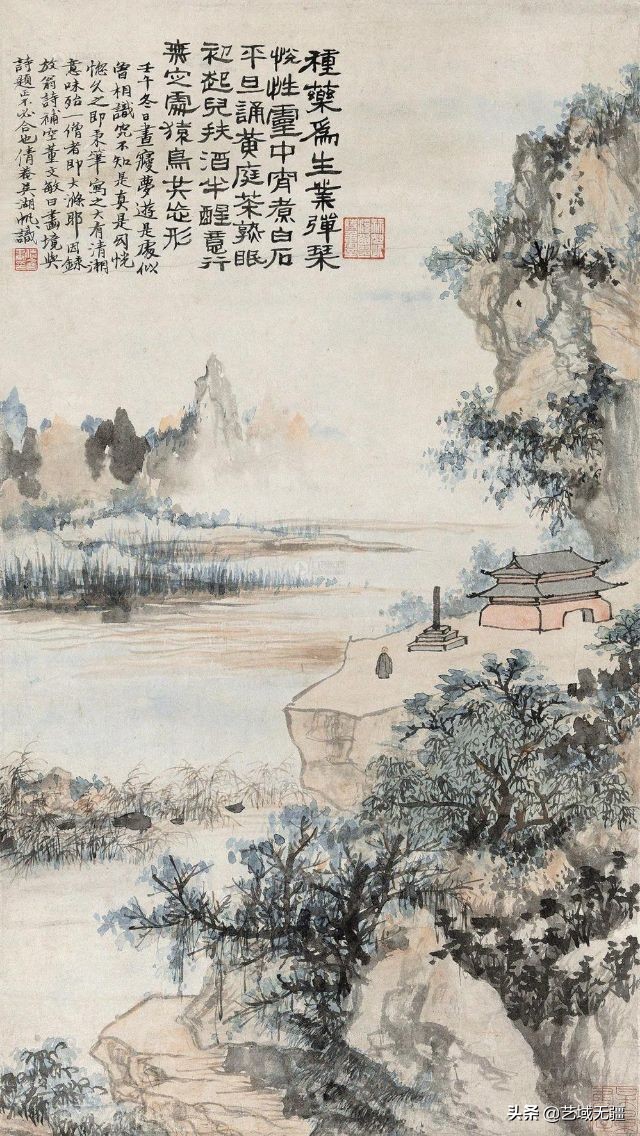 種藥爲生業彈琴
悅性靈中宵煮白石
平旦誦黃庭茶熟眠
初起兒扶酒半醒意行
無定處猿鳥共忘形
壬午冬日晝寢夢遊是處似
曾相識究不知是真是幻恍
惚久之即秉筆寫之大有清湘
意味殆一僧者即大滌耶因錄
放翁詩補空董文敏曰畫境與
詩題正不必合也倩菴吳湖帆識
头条 @艺域无疆